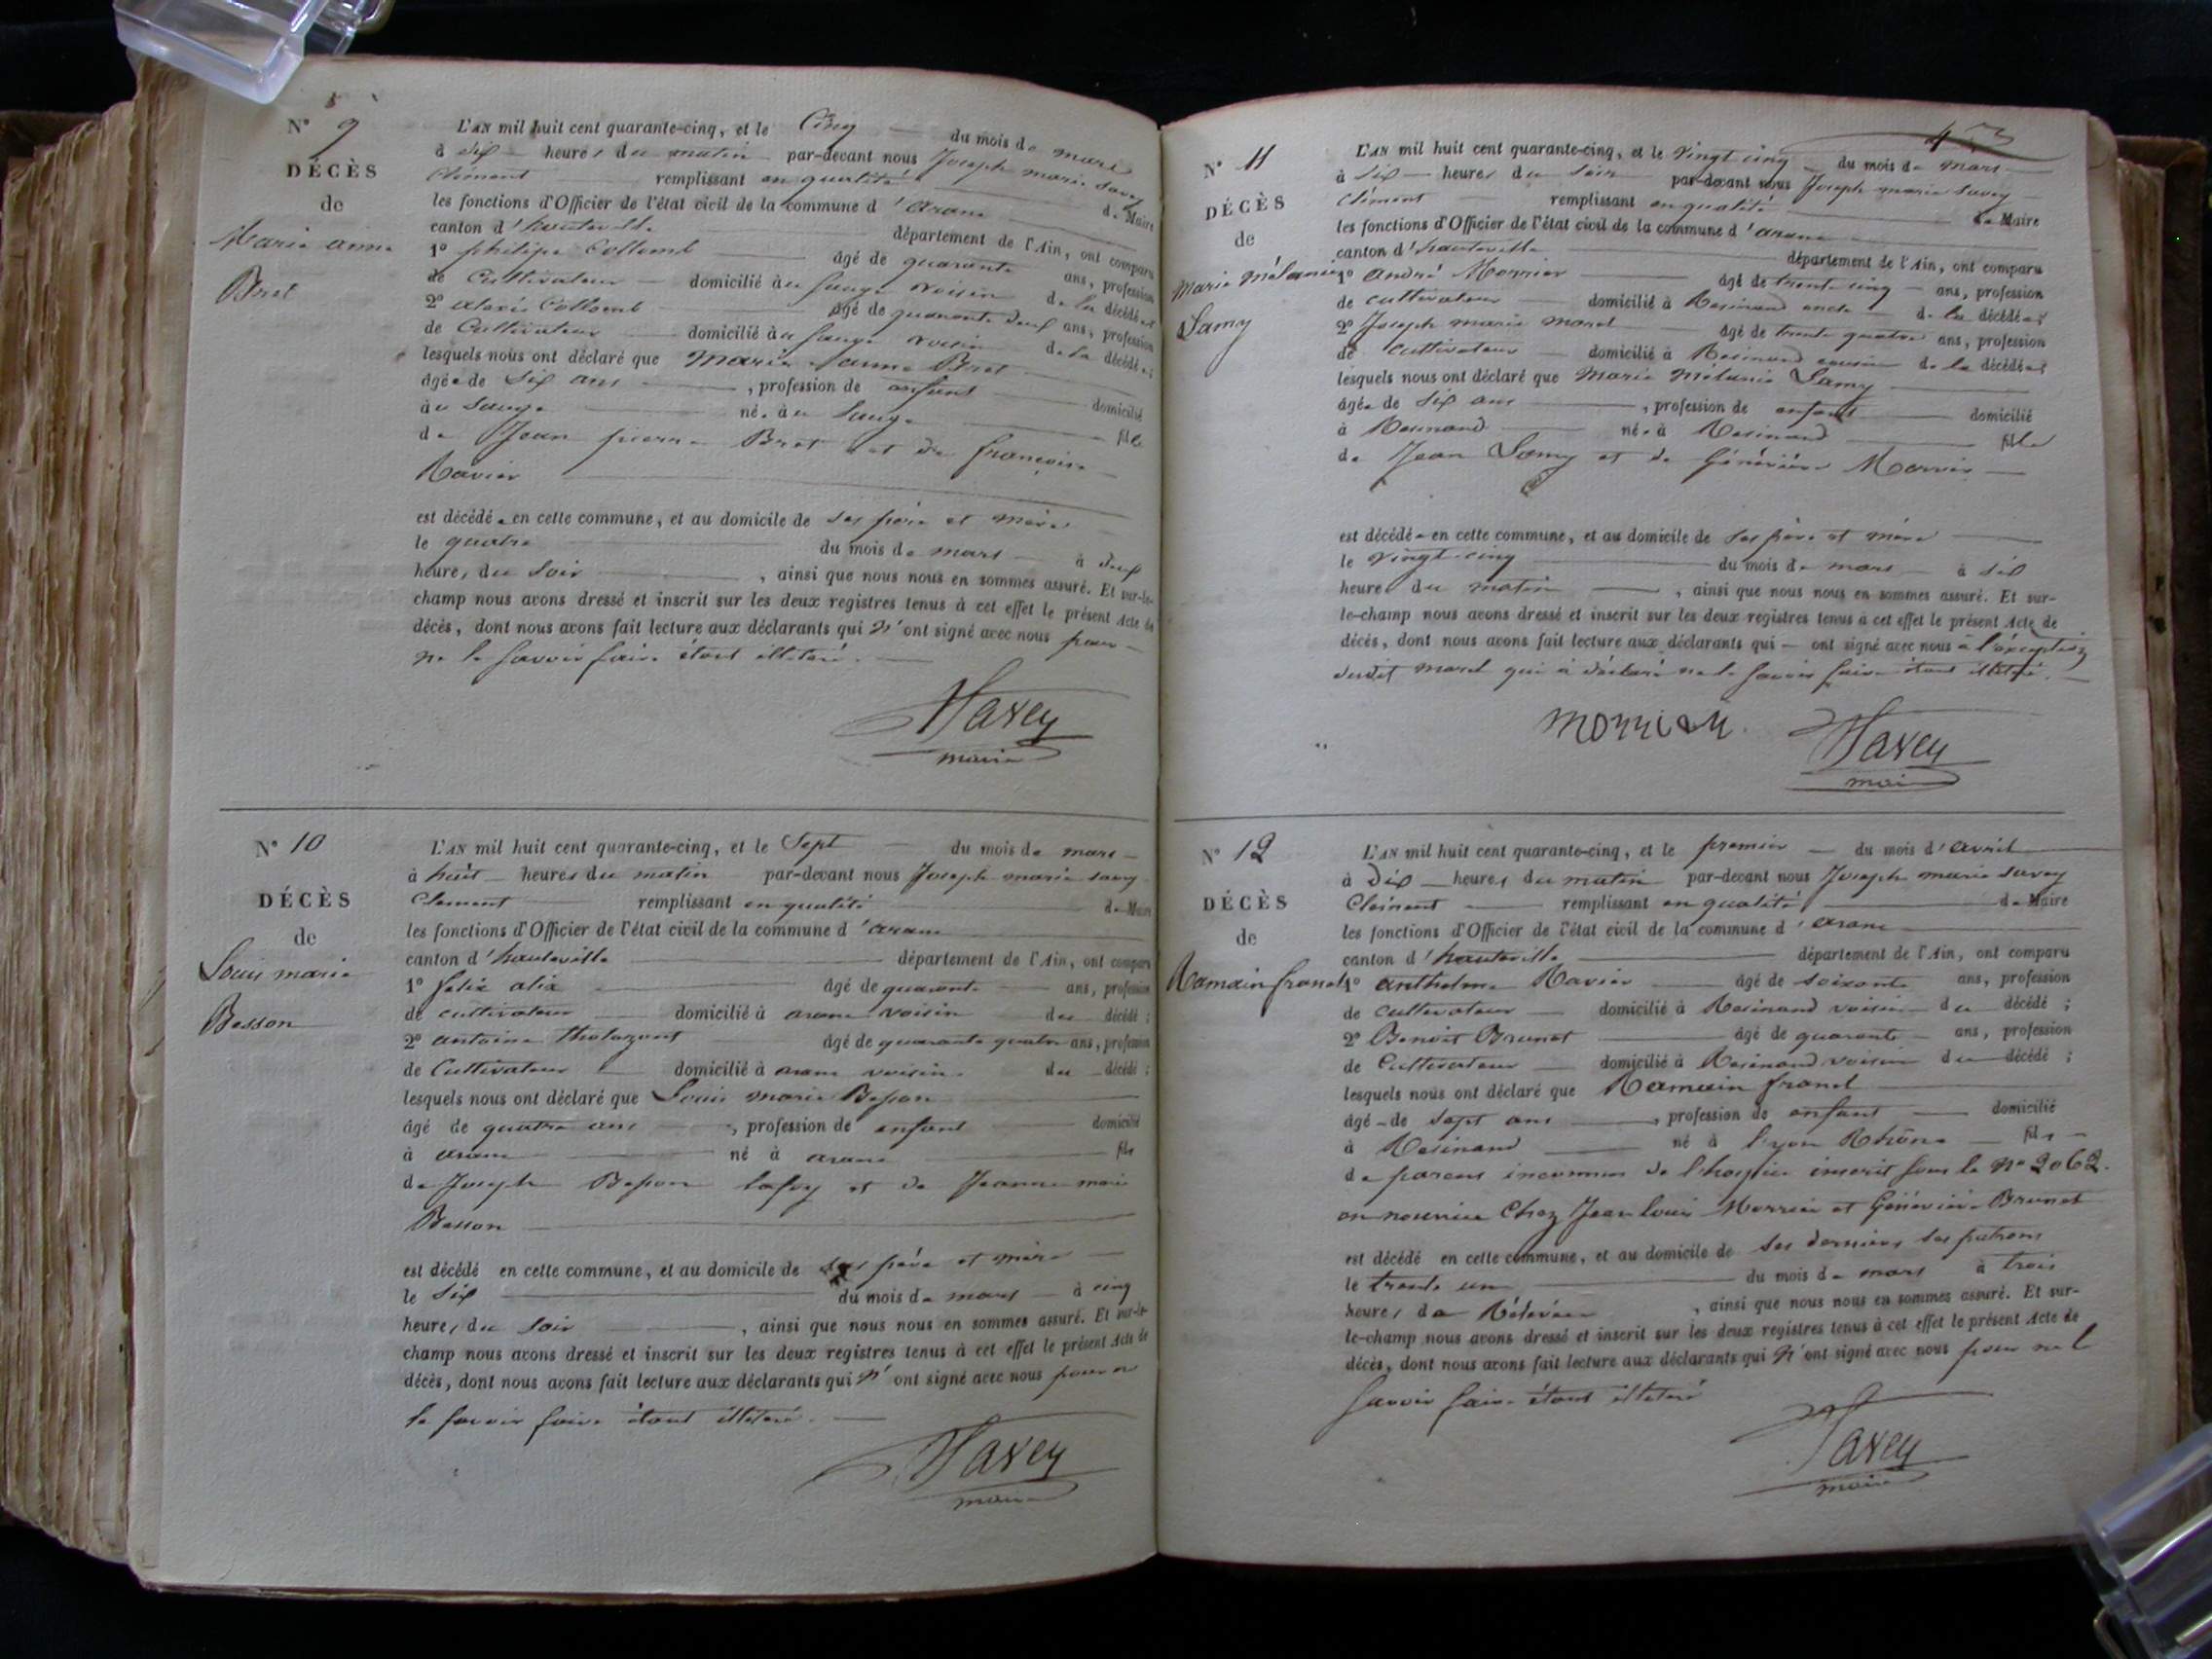 N° 9
DÉCÈS
de
Marie anne
Bret
L'AN mil huit cent quarante-cinq, et le Cinq du mois de mars
à dix heures du matin par-devant nous Joseph marie Savey
Clément remplissant en qualité de Maire
les fonctions d'Officier de l'état civil de la commune d'aranc
canton d'hauteville département de l'Ain, ont comparu
1° philipe Collomb âgé de quarante ans, profession
de Cultivateur domicilié au Sauge voisin de la décédée;
2° alexis Collomb âgé de quarante deux ans, profession
de Cultivateur domicilié au Sauge voisin de la décédée;
lesquels nous ont déclaré que Marie Janne Bret
âgée de six ans, profession de enfant domicilié
au Sauge née au Sauge fille
de Jean pierre Bret et de françoise
Ravier
est décédée en cette commune, et au domicile de ses père et mère
le quatre du mois de mars à deux
heure, du Soir, ainsi que nous nous en sommes assuré. Et sur-le-
champ nous avons dressé et inscrit sur les deux registres tenus à cet effet le présent Acte de
décès, dont nous avons fait lecture aux déclarants qui n'ont signé avec nous pour
ne le savoir faire étant illitéré.
Savey
maire
N° 10
DÉCÈS
de
Louis marie
Besson
L'AN mil huit cent quarante-cinq, et le Sept du mois de mars
à huit heures du matin par-devant nous Joseph marie Savey
Clement remplissant en qualité de Maire
les fonctions d'Officier de l'état civil de la commune d'aranc
canton d'hauteville département de l'Ain, ont comparu
1° felix alix âgé de quarante ans, profession
de cultivateur domicilié à aranc voisin du décédé;
2° antoine âgé de quarante quatre ans, profession
de Cultivateur domicilié à aranc voisin du décédé;
lesquels nous ont déclaré que Louis marie Besson
âgé de quatre ans, profession de enfant domicilié
à aranc né à aranc fils
de Joseph Besson et de Jeanne marie
Besson
est décédé en cette commune, et au domicile de ses père et mère
le Six du mois de mars à cinq
heures du Soir, ainsi que nous nous en sommes assuré. Et sur-le-
champ nous avons dressé et inscrit sur les deux registres tenus à cet effet le présent Acte de
décès, dont nous avons fait lecture aux déclarants qui n'ont signé avec nous pour ne
le savoir faire étant illitéré.
Savey
maire
N° 11
DÉCÈS
de
Marie Mélanie
Samy
L'AN mil huit cent quarante-cinq, et le vingt cinq du mois de mars
à six heures du Soir par-devant nous Joseph marie Savey
Clément remplissant en qualité de Maire
les fonctions d'Officier de l'état civil de la commune d'aranc
canton d'hauteville département de l'Ain, ont comparu
1° andré Morrier âgé de trente cinq ans, profession
de cultivateur domicilié à Resinand oncle de la décédée;
2° Joseph marie morel âgé de trente quatre ans, profession
de cultivateur domicilié à Resinand cousin de la décédée;
lesquels nous ont déclaré que Marie Mélanie Samy
âgée de six ans, profession de enfant domicilié
à Resinand née à Resinand fille
de Jean Samy et de Génévière Morrier
est décédée en cette commune, et au domicile de ses père et mère
le vingt-cinq du mois de mars à six
heures du matin, ainsi que nous nous en sommes assuré. Et sur-
le-champ nous avons dressé et inscrit sur les deux registres tenus à cet effet le présent Acte de
décès, dont nous avons fait lecture aux déclarants qui ont signé avec nous à l'exception
dudit morel qui a déclaré ne le savoir faire étant illitéré.
morrier
Savey
maire
N° 12
DÉCÈS
de
Romain franel
L'AN mil huit cent quarante-cinq, et le premier du mois d'avril
à Dix heures du matin par-devant nous Joseph marie Savey
Clément remplissant en qualité de Maire
les fonctions d'Officier de l'état civil de la commune d'aranc
canton d'hauteville département de l'Ain, ont comparu
1° anthelme Ravier âgé de soixante ans, profession
de cultivateur domicilié à Resinand voisin du décédé;
2° Benoit Brunet âgé de quarante ans, profession
de Cultivateur domicilié à Resinand voisin du décédé;
lesquels nous ont déclaré que Romain franel
âgé de sept ans, profession de enfant domicilié
à Resinand né à lyon Rhône fils
de parens inconnus de l'hospice inscrit sous le n° 2062.
en nourrice Chez Jean louis Morrier et Génévière Brunet
est décédé en cette commune, et au domicile de ses derniers ses patrons
le trente un du mois de mars à trois
heures de Rélevée, ainsi que nous nous en sommes assuré. Et sur-
le-champ nous avons dressé et inscrit sur les deux registres tenus à cet effet le présent Acte de
décès, dont nous avons fait lecture aux déclarants qui n'ont signé avec nous pour ne l
savoir faire étant illitéré
Savey
maire